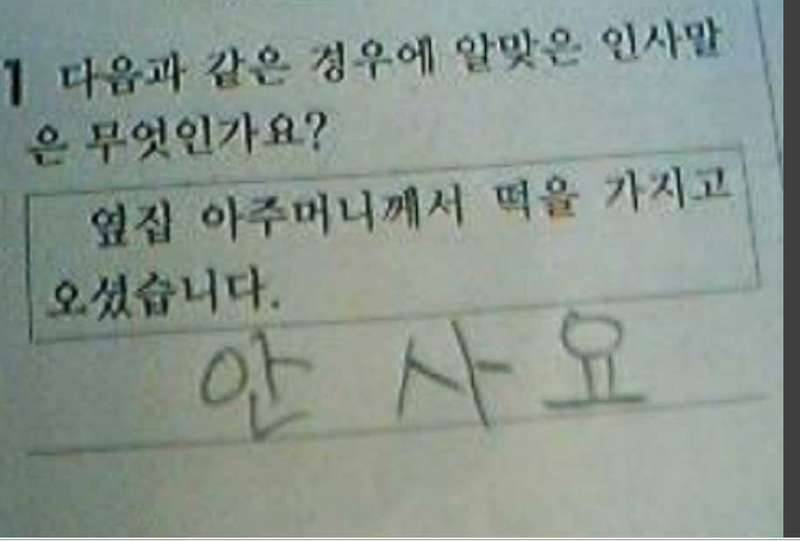 1 다음과 같은 경우에 알맞은 인사말
은 무엇인가요?
옆집 아주머니께서 떡을 가지고
오셨습니다.
안 사요